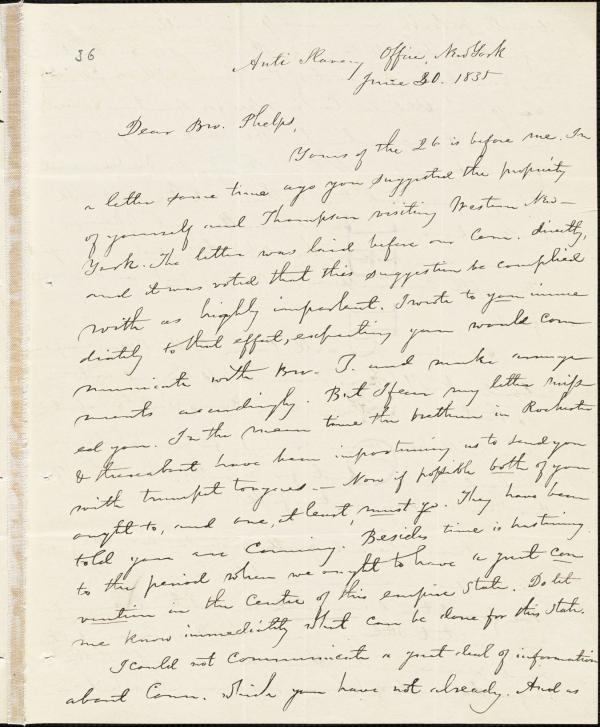 36
Anti Slavery Office, New York
June 30. 1835
Dear Bro. Phelps,
Yours of the 26 is before me. In
a letter some time ago you suggested the propriety
of yourself and Thompson visiting Western New-
York. The letter was laid before our Com. directly,
and it was voted that this suggestion be complied
with as highly important. I wrote to you imme
diately to that effect, expecting you would com
municate with Bro. T. and make arrange
ments accordingly. But I fear my letter miss
ed you. In the mean time the brethren in Rochester
& thereabout have been importuning us to send you
with trumpet tongues - Now if possible both of you
ought to, and one, at least, must go. They have been
told you are coming. Besides time is hastening
to the period when we ought to have a great con
vention in the centre of this empire State. Do let
me know immediately what can be done for this State.
I could not communicate a great deal of information
about Conn. which you have not already. And as